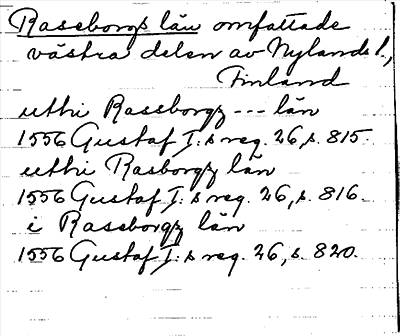 Raseborgs län omfattade
västra delen av Nylands l.,
Finland
uthi Rasseborgz --- län
1556 Gustaf I:s reg. 26, s. 815.
uthi Rasborgz län
1556 Gustaf I:s reg. 26, s. 816.
i Rasseborgz län
1556 Gustaf I:s reg. 26, s. 820.